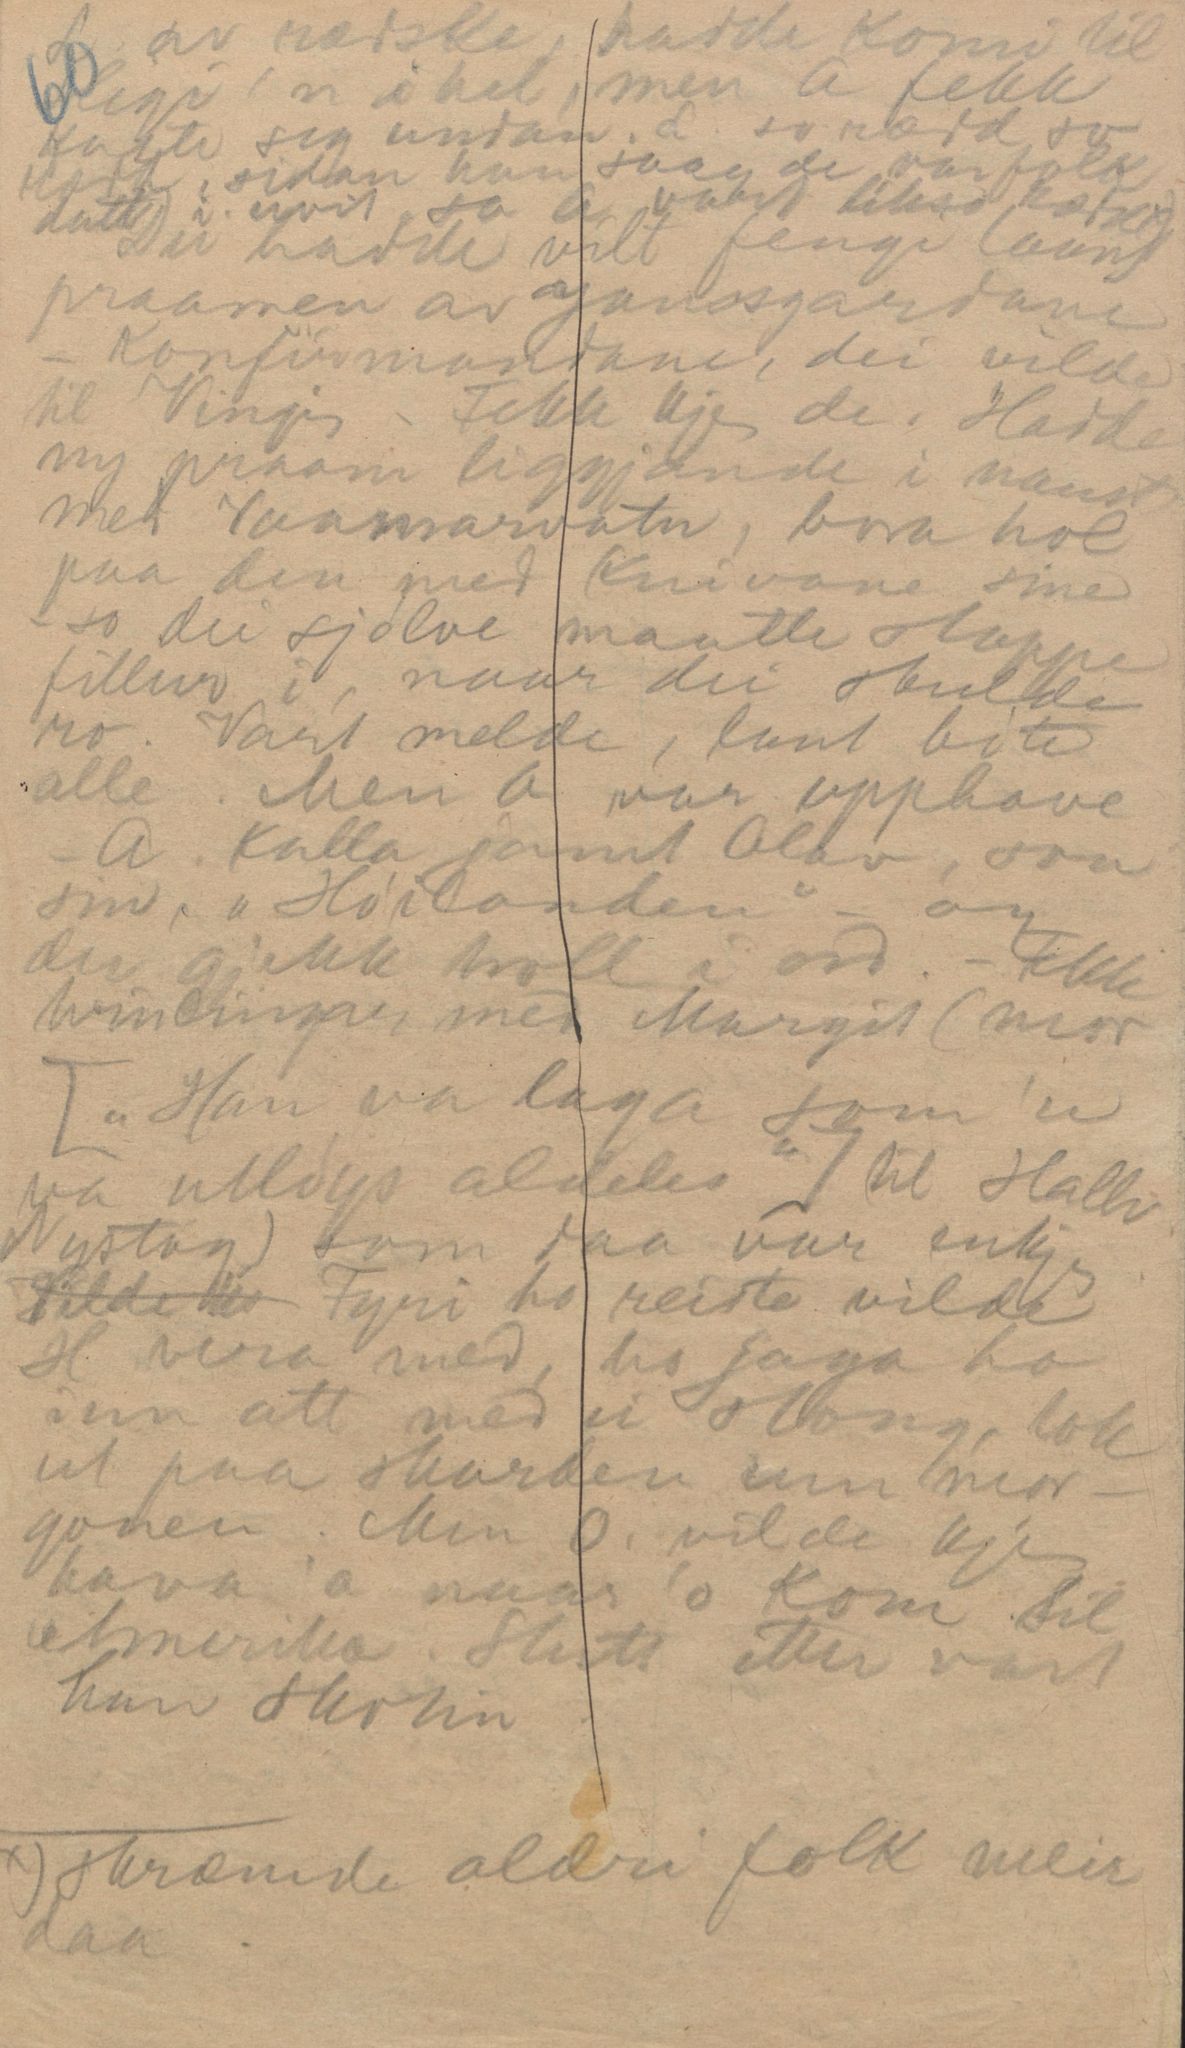 60
L. av rædsle, hadde komi til
legi 'n ihel, men A fekk
kasta seg undan. L. so rædd so
sidan han saag de var folk
datt i uvit, so A vart likso rædd x)
Dei hadde vilt fengi laant
praamen av Jonosgardane
- Konfirmantane, dei vilde
til Vinje, - Fekk kje de. Hadde
ny praam liggjande i naust
med Vaamarvatn, bora hol
paa den med knivane sine
- so dei sjølve maatte stappe
fillur i, naar dei skulde
ro. Vart melde, laut bøte
alle. Men O var upphave
- A. kalla jamt Olav, son
sin, "Høilanden" - og
der gjekk troll i ord. - Fekk
tvinlingar med Margit (mor
["Han va laga som 'n
va utløys aldeles"] til Hallv
Nystog) som daa var enkje
Vilde ho Fyri ho reiste vilde
H vera med, ho jaga ho
inn att med ei stong, tok
ut paa skarden um mor-
gonen. Men O. vilde kje
hava 'a naar 'o kom til
Amerika. Stutt etter vart
han skotin.
x) skræmde aldri folk meir
daa.